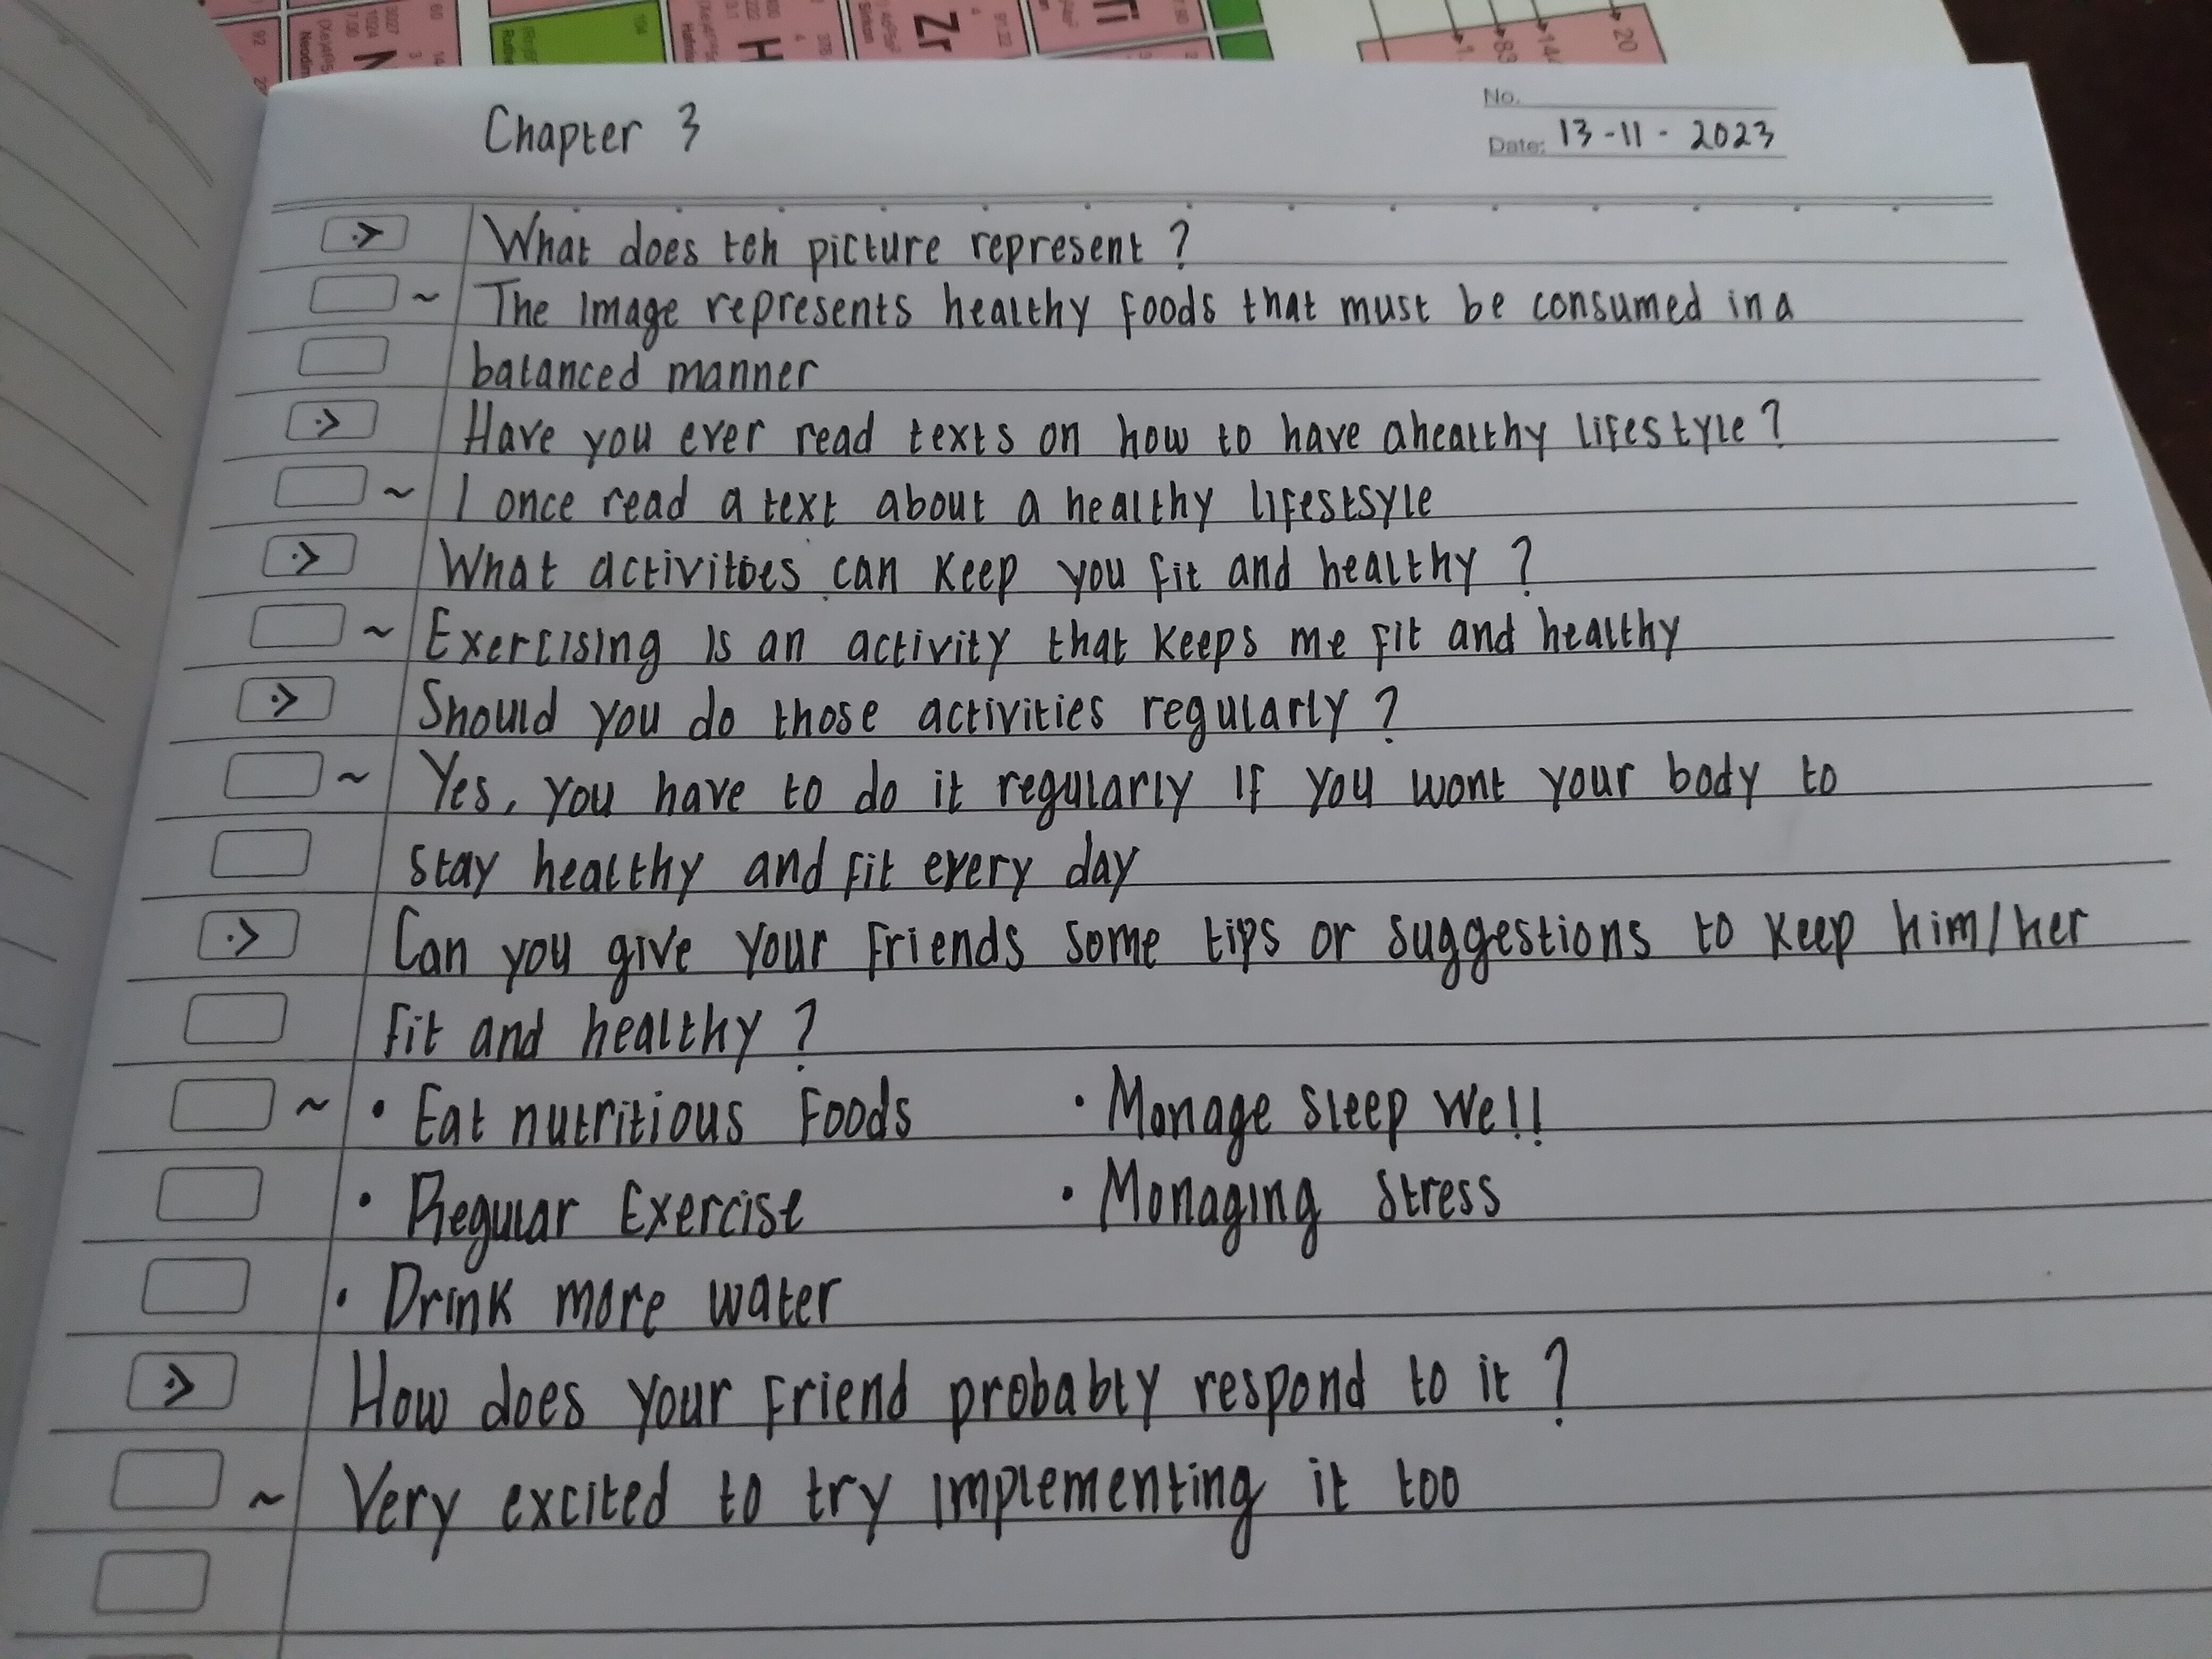 N
H
Zr
Ti
20
No.
Date: 13-11-2023
Chapter 3
What does teh picture represent ?
~ The Image represents healthy foods that must be consumed in a
balanced manner
Have you ever read texts on how to have ahealthy lifestyle ?
~ I once read a text about a healthy lifestsyle
What activitoes can keep you fit and healthy ?
~ Exercising is an activity that keeps me fit and healthy
Should you do those activities regularly ?
~ Yes, you have to do it regularly if you wont your body to
stay healthy and fit every day
Can you give your friends some tips or suggestions to keep him/her
fit and healthy ?
~ • Eat nutritious Foods • Monage sleep Well
• Regular Exercise • Monaging Stress
• Drink more water
How does your friend probably respond to it ?
~ Very excited to try implementing it too